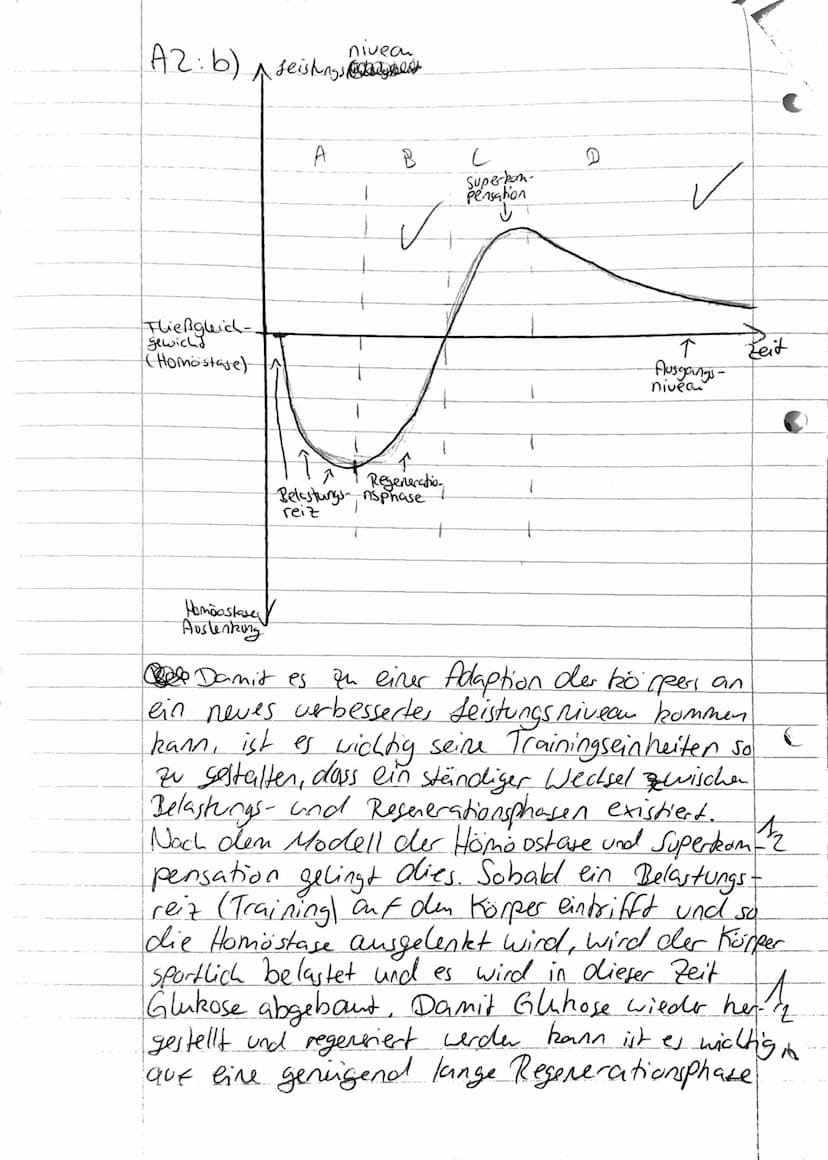 A2: b)
niveau
Leistungs
A B C D
Superkom-
pensation
Fließgleich-
gewicht
(Homöostase)
Zeit
Ausgangs-
niveau
Belastungs-
reiz
Regenerati-
onsphase
Homöostase
Auslenkung
Damit es zu einer Adaption des Körpers an
ein neues verbessertes Leistungsniveau kommen
kann, ist es wichtig seine Trainingseinheiten so
zu gestalten, dass ein ständiger Wechsel zwischen
Belastungs- und Regenerationsphasen existiert.
Nach dem Modell der Homöostase und Superkom- 1/2
pensation gelingt dies. Sobald ein Belastungs-
reiz (Training) auf den Körper eintrifft und so
die Homöstase ausgelenkt wird, wird der Körper
sportlich belastet und es wird in dieser Zeit
Glukose abgebaut. Damit Glukose wieder her- 1/2
gestellt und regeneriert werden kann ist es wichtig
auf eine genügend lange Regenerationsphase